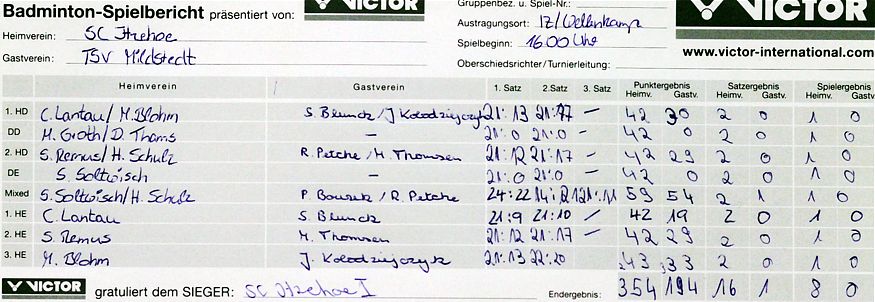 Badminton-Spielbericht präsentiert von: VICTOR
Gruppenbez. u. Spiel-Nr.:
VICTOR
Heimverein: SC Itzehoe
Austragungsort: IZ/Wellenkamp
Gastverein: TSV Mildstedt
Spielbeginn: 16.00 Uhr
www.victor-international.com
Oberschiedsrichter/Turnierleitung:
Heimverein Gastverein 1. Satz 2.Satz 3. Satz Punktergebnis Heimv. Gastv. Satzergebnis Heimv. Gastv. Spielergebnis Heimv. Gastv.
1. HD C. Lantau/M. Blohm S. Blunck/J. Kolodziejczyk 21:13 21:17 – 42 30 2 0 1 0
DD M. Groth/D. Thams – 21:0 21:0 – 42 0 2 0 1 0
2. HD S. Remus/H. Schulz R. Petche/M. Thomsen 21:12 21:17 – 42 29 2 0 1 0
DE S. Soltwisch – 21:0 21:0 – 42 0 2 0 1 0
Mixed S. Soltwisch/H. Schulz P. Bousek/R. Petche 24:22 21:11 59 54 2 1 1 0
1. HE C. Lantau S. Blunck 21:9 21:10 – 42 19 2 0 1 0
2. HE S. Remus M. Thomsen 21:12 21:17 – 42 29 2 0 1 0
3. HE M. Blohm J. Kolodziejczyk 21:13 22:20 43 33 2 0 1 0
VICTOR gratuliert dem SIEGER: SC Itzehoe I Endergebnis: 354 194 16 1 8 0